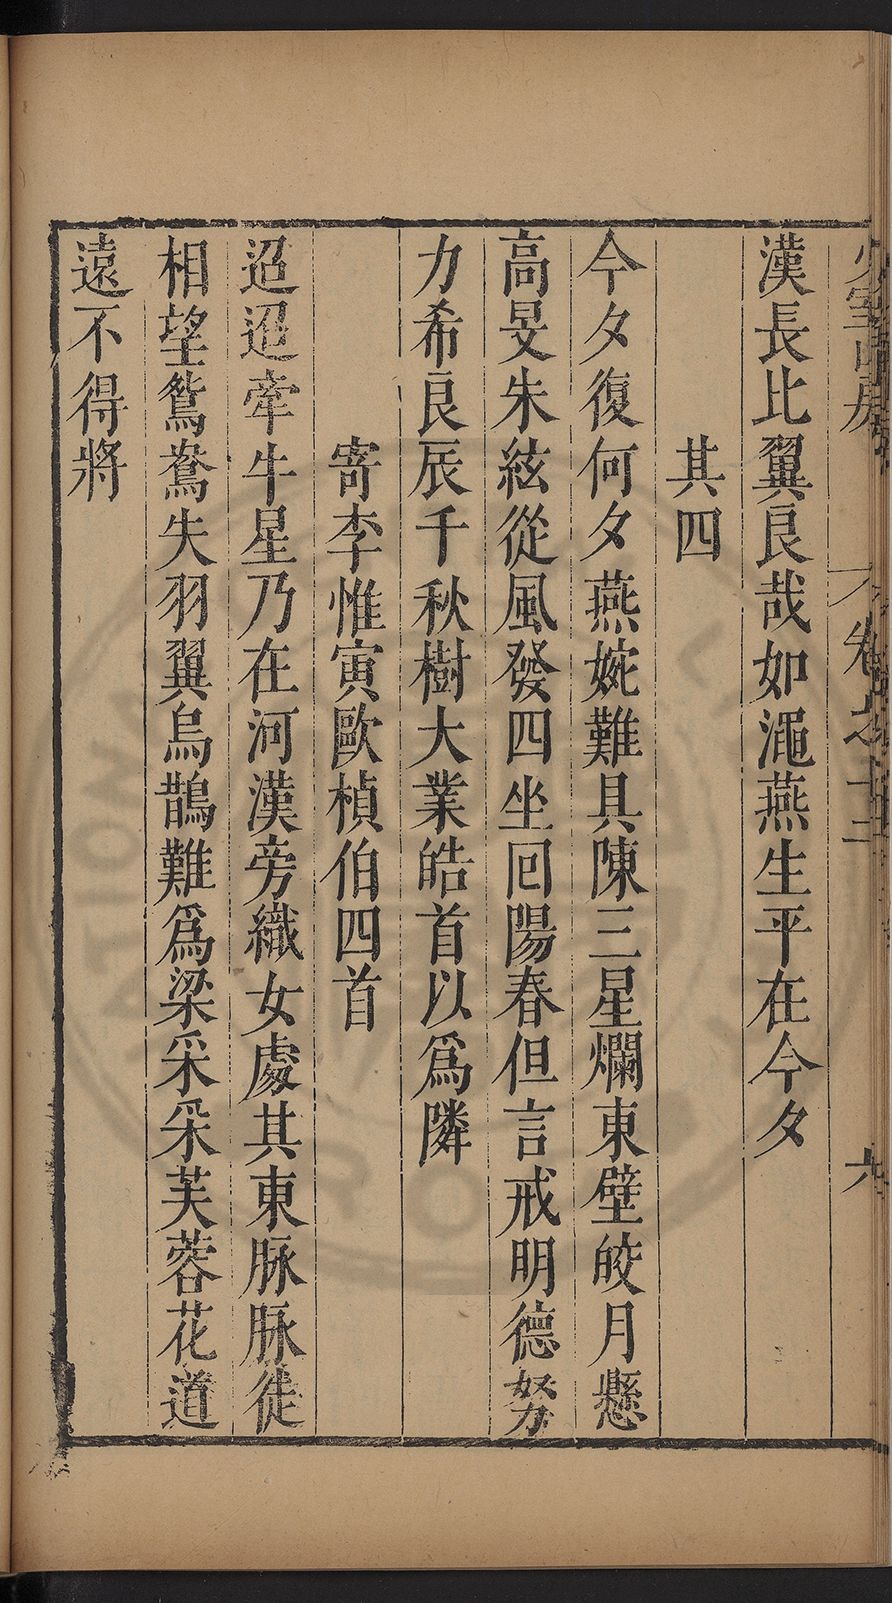 少室山房
卷之十二
六
漢長比翼良哉如澠燕生平在今夕
其四
今夕復何夕燕婉難具陳三星爛東壁皎月懸
高旻朱絃從風發四坐囘陽春但言戒明德努
力希良辰千秋樹大業皓首以爲隣
寄李惟寅歐楨伯四首
迢迢牽牛星乃在河漢旁織女處其東脉脉徒
相望鴛鴦失羽翼烏鵲難爲梁采采芙蓉花道
遠不得將